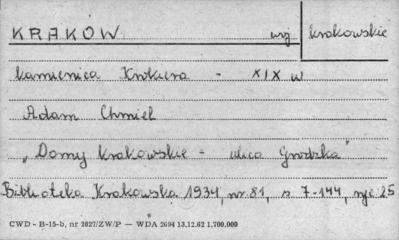 KRAKÓW woj krakowskie
kamienica Krokiera - XIX w
Adam Chmiel
"Domy krakowskie - ulica Grodzka"
Biblioteka Krakowska 1934, nr 81, s 7-144, ryc 25
CWD - B-15-b, nr 2827/ZW/P — WDA 2694 13.12.62 1.700.000